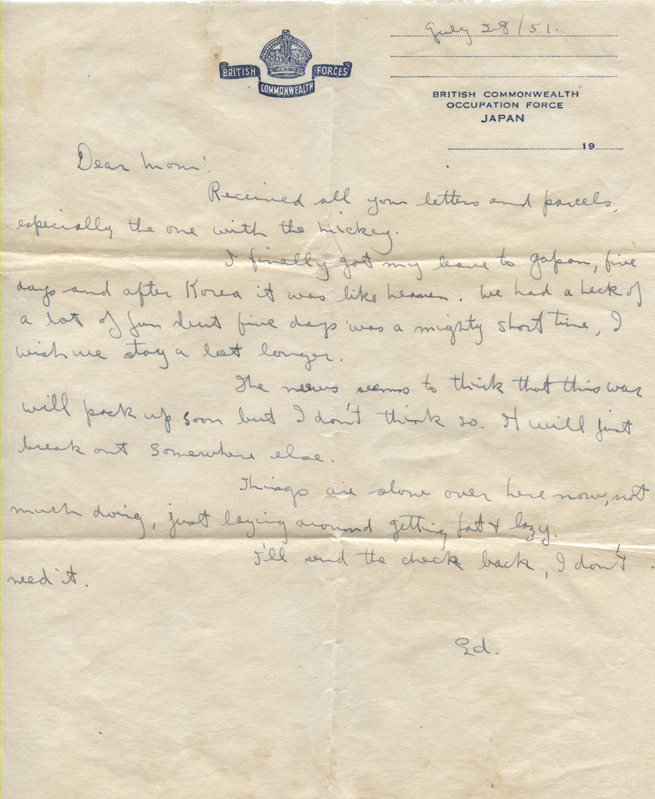 July 28/51.
BRITISH FORCES
COMMONWEALTH
BRITISH COMMONWEALTH
OCCUPATION FORCE
JAPAN
19
Dear Mom:
Received all your letters and parcels,
especially the one with the mickey.
I finally got my leave to Japan, five
days and after Korea it was like heaven. We had a heck of
a lot of fun but five days was a mighty short time, I
wish we stay a lot longer.
The news seems to think that this war
will pack up soon but I don't think so. It will just
break out somewhere else.
Things are slow over here now, not
much doing, just laying around getting fat & lazy.
I'll send the check back, I don't
need it.
Ed.